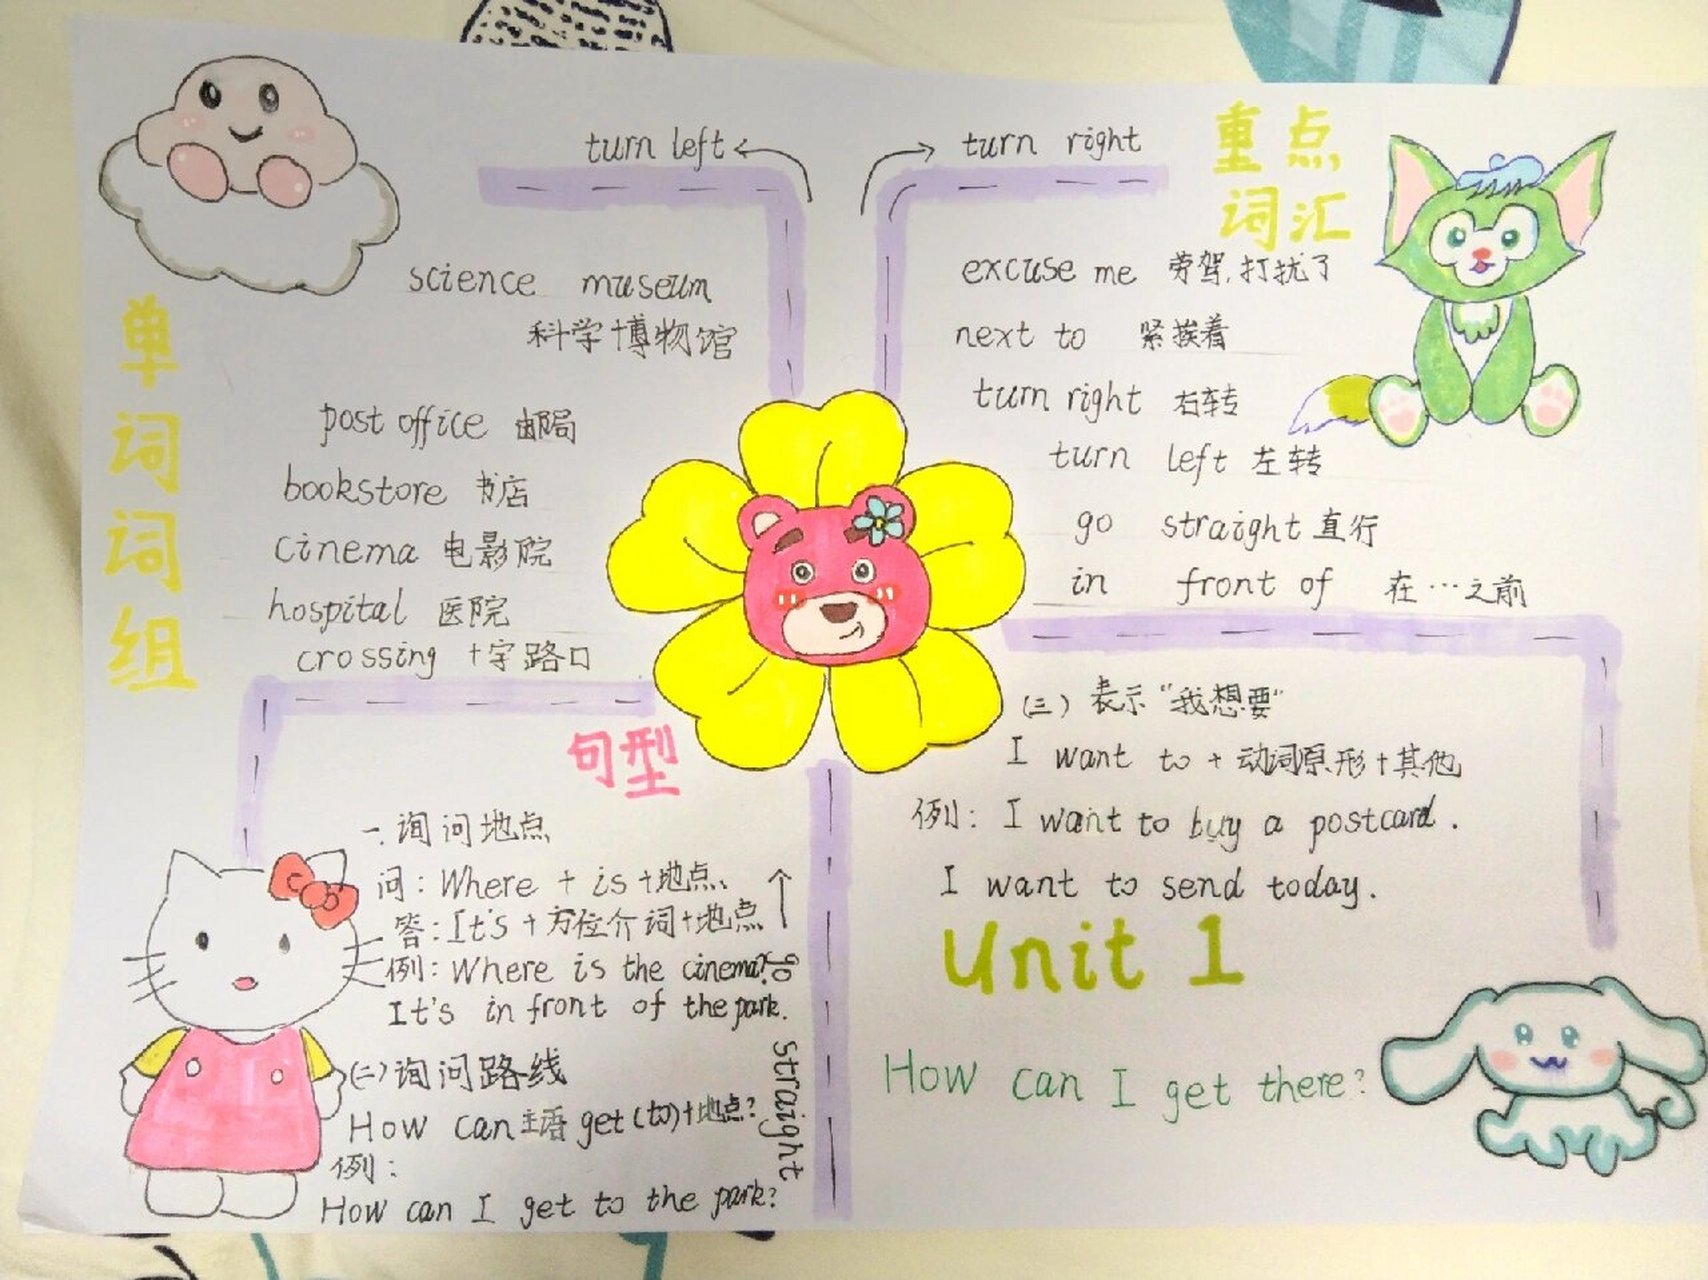 turn left
turn right
单词词组
science museum
科学博物馆
post office 邮局
bookstore 书店
cinema 电影院
hospital 医院
crossing 十字路口
重点
词汇
excuse me 劳驾,打扰了
next to 紧挨着
turn right 右转
turn left 左转
go straight 直行
in front of 在…之前
句型
一.询问地点
问: Where + is + 地点、
答: It's + 方位介词+地点
例: Where is the cinema?
It's in front of the park.
(二)询问路线
How can 主语 get (to)+地点?
例:
How can I get to the park?
go straight
(三) 表示“我想要”
I want to + 动词原形+其他
例: I want to buy a postcard.
I want to send today.
Unit 1
How can I get there?